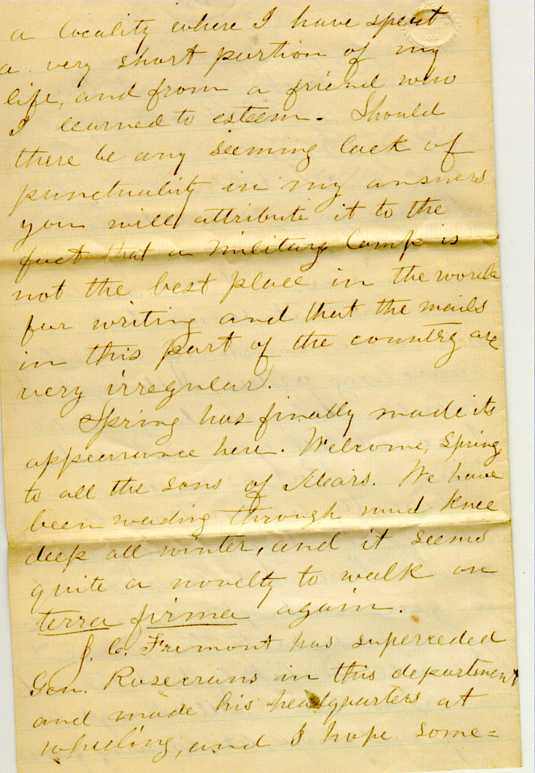 a locality where I have spent
a very short portion of my
life, and from a friend who
I learned to esteem. Should
there be any seeming lack of
punctuality in my answers
you will attribute it to the
fact that a Military Camp is
not the best place in the world
for writing and that the mails
in this part of the country are
very irregular.
Spring has finally made its
appearance here. Welcome, Spring
to all the sons of Mars. We have
been wading through mud knee
deep all winter, and it seems
quite a novelty to walk on
terra firma again.
J. C. Fremont has superceded
Gen. Rosecrans in this department
and made his headquarters at
Wheeling, and I hope some=